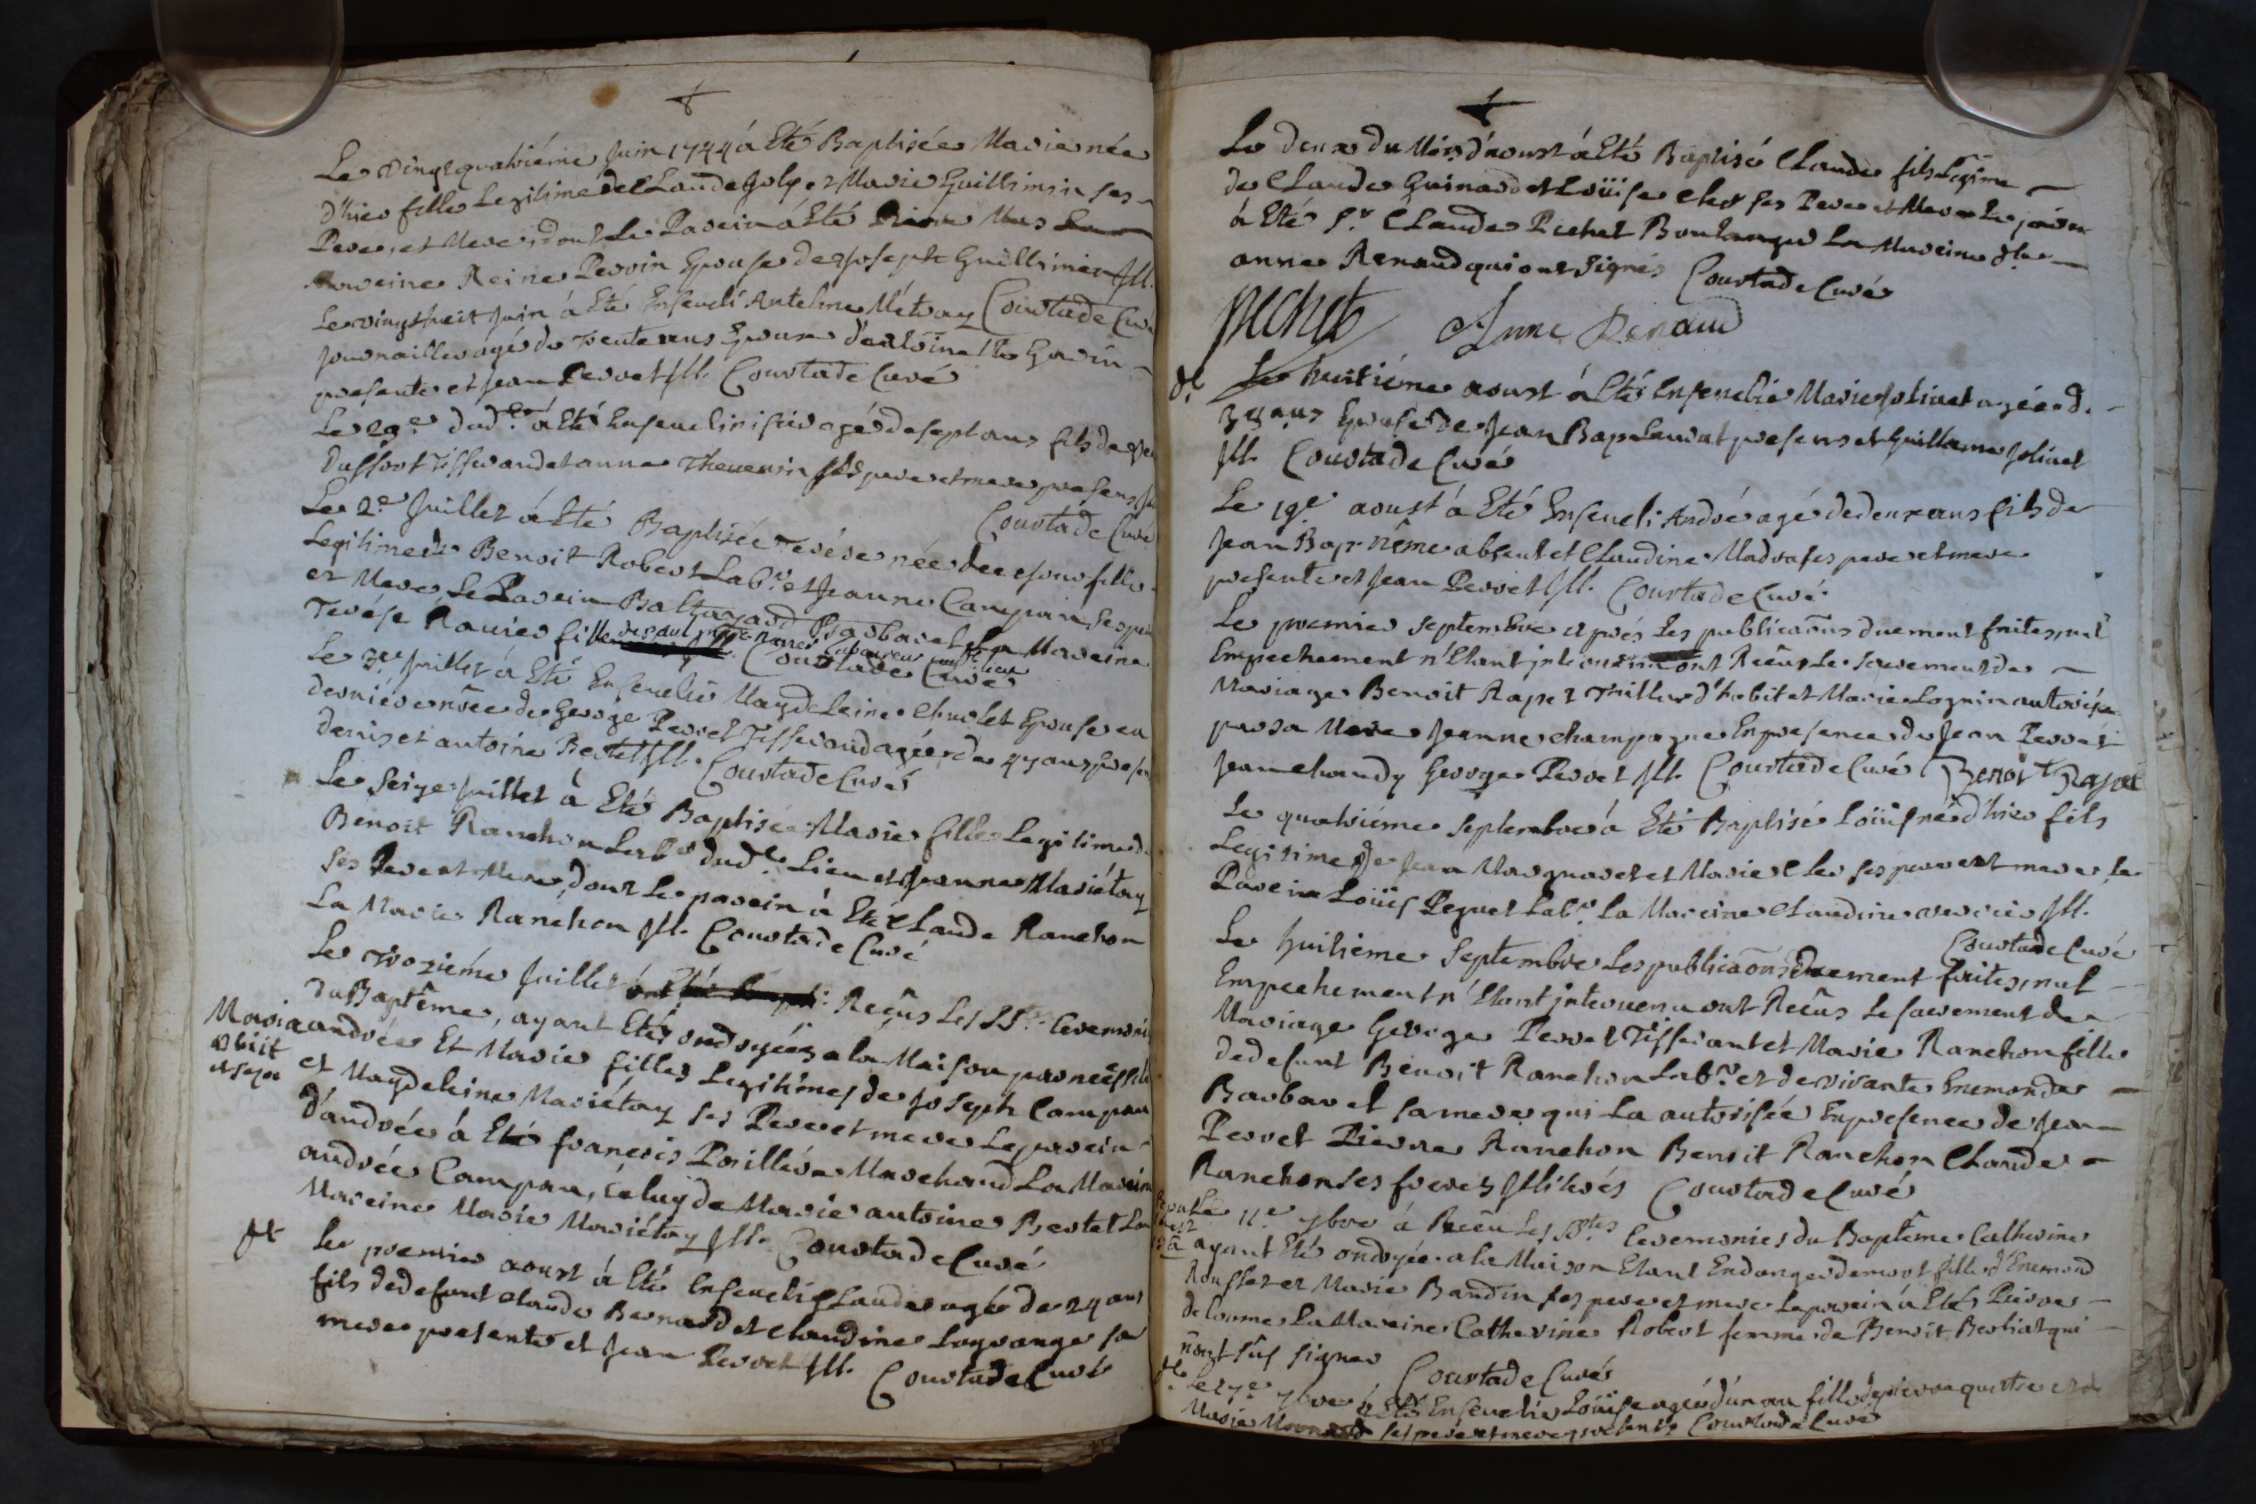 Le vingt quatriéme Juin 1744 á Eté Baptisée Marie née
d'hier fille Legitime de Claude Goly et Marie Guilliminin ses
Pere, et Mere, dont Le Parein á Eté
Mareine Reine Perrin Epouse de Joseph Guilliminin Ill.
Le vingt huit Juin á Eté Enseveli Antelme Métray Courtade Curé
Journaillier agé de Trente ans Epoux d'antoinette Garin
presente et Jean Perret Ill. Courtade Curé
Le 29e dud. á Eté Enseveli agé de sept ans fils de
Duffort Tisserand et anne Thevenin ses pere et mere presens
Courtade Curé
Le 2e Juillet á Eté Baptisée Terése née fille
Legitime de Benoit Robert Labr. et Jeanne Campan Ses pere
et Mere, Le Parein Baltazard Barbaret La Mareine
Terése Ravier fille Courtade Curé
Le Juillet á Eté Ensevelie Magdeleine Chuolet Epouse en
derniére nôce de George Perret Tisserand agée de 47 ans presens
denis et antoine Bertet Ill. Courtade Curé
Le Seize Juillet á Eté Baptisée Marie fille Legitime de
Benoit Ranchon Labr. dud. Lieu et Jeanne Mariétay
ses Pere et Mere, dont Le parein á Eté Claude Ranchon
La Marie Ranchon Ill. Courtade Curé
Le Troziéme Juillet Reçûs Les Stes Ceremonies
du Baptême, ayant Etés ondoyées a la Maison par necessité
Maria andrée Et Marie filles Legitimes de Joseph Campan
obiit
et Magdeleine Mariétay ses Pere et mere Le parein
d'andrée á Eté françois Poilléve Marchand La Mareine
andrée Campan, celuy de Marie antoine Bertet La
Mareine Marie Mariétay Ill. Courtade Curé
Le premier aoust á Eté Enseveli Claude agé de 24 ans
fils de defunt Claude Bernard et Claudine Lagrange sa
mere presente et Jean Perret Ill. Courtade Curé
Le deux du Mois d'aoust á Eté Baptisé Claude fils Legitime
de Claude Guinard et Loüise Clet ses Pere et Mere Le parein
á Eté Sr. Claude Pichet Boulanger La Mareine dlle
anne Renaud qui ont signés Courtade Curé
pichet Anne Renaud
Le huitiéme aoust á Eté Ensevelie Marie Jolivet agée de
35 ans Epouse de Jean Bap. Laurat presens et Guillaume Jolivet
Ill. Courtade Curé
Le 19e aoust á Eté Enseveli André agé de deux ans fils de
Jean Bap. Nême absent et Claudine Madra ses pere et mere
presente et Jean Perret Ill. Courtade Curé
Le premier Septembre aprés Les publicaõns duement faites, nul
Empechement n'Etant intervenu ont Reçûs Le sacrement de
Mariage Benoit Rapet Tailleur d'habit et Marie Lognin autorisée
par sa Mere Jeanne champagne En presence de Jean Perret
Jean chandy George Perret Ill. Courtade Curé Benoit Rapet
Le quatriéme Septembre á Eté Baptisé Loüis né d'hier fils
Legitime de Jean Marguaret et Marie Cler ses pere et mere Le
Parein Loüis Peguet Labr. La Mareine Claudine mercier Ill.
Courtade Curé
Le huitiéme Septembre Les publicaõns duement faites, nul
Empechement n'Etant intervenu ont Reçûs Le sacrement de
Mariage George Perret Tisserant et Marie Ranchon fille
de defunt Benoit Ranchon Labr. et de vivante Enemonde
Barbaret sa mere qui La autorisée En presence de Jean
Perret Pierre Ranchon Benoit Ranchon Claude
Ranchon ses freres Illiterés Courtade Curé
Le 11e 7bre á Reçu Les Stes Ceremonies du Baptême Catherine
ayant Eté ondoyée a la Maison Etant En danger de mort fille d'Enemond
Rousset et Marie Baudin ses pere et mere Le parein á Eté Pierre
delorme La Mareine Catherine Robert femme de Benoit Berliat qui
n'ont sûs signer Courtade Curé
Le 27e 7bre á Eté Ensevelie Loüise agée d'un an fille de pierre et de
Marie ses pere et mere presents Courtade Curé